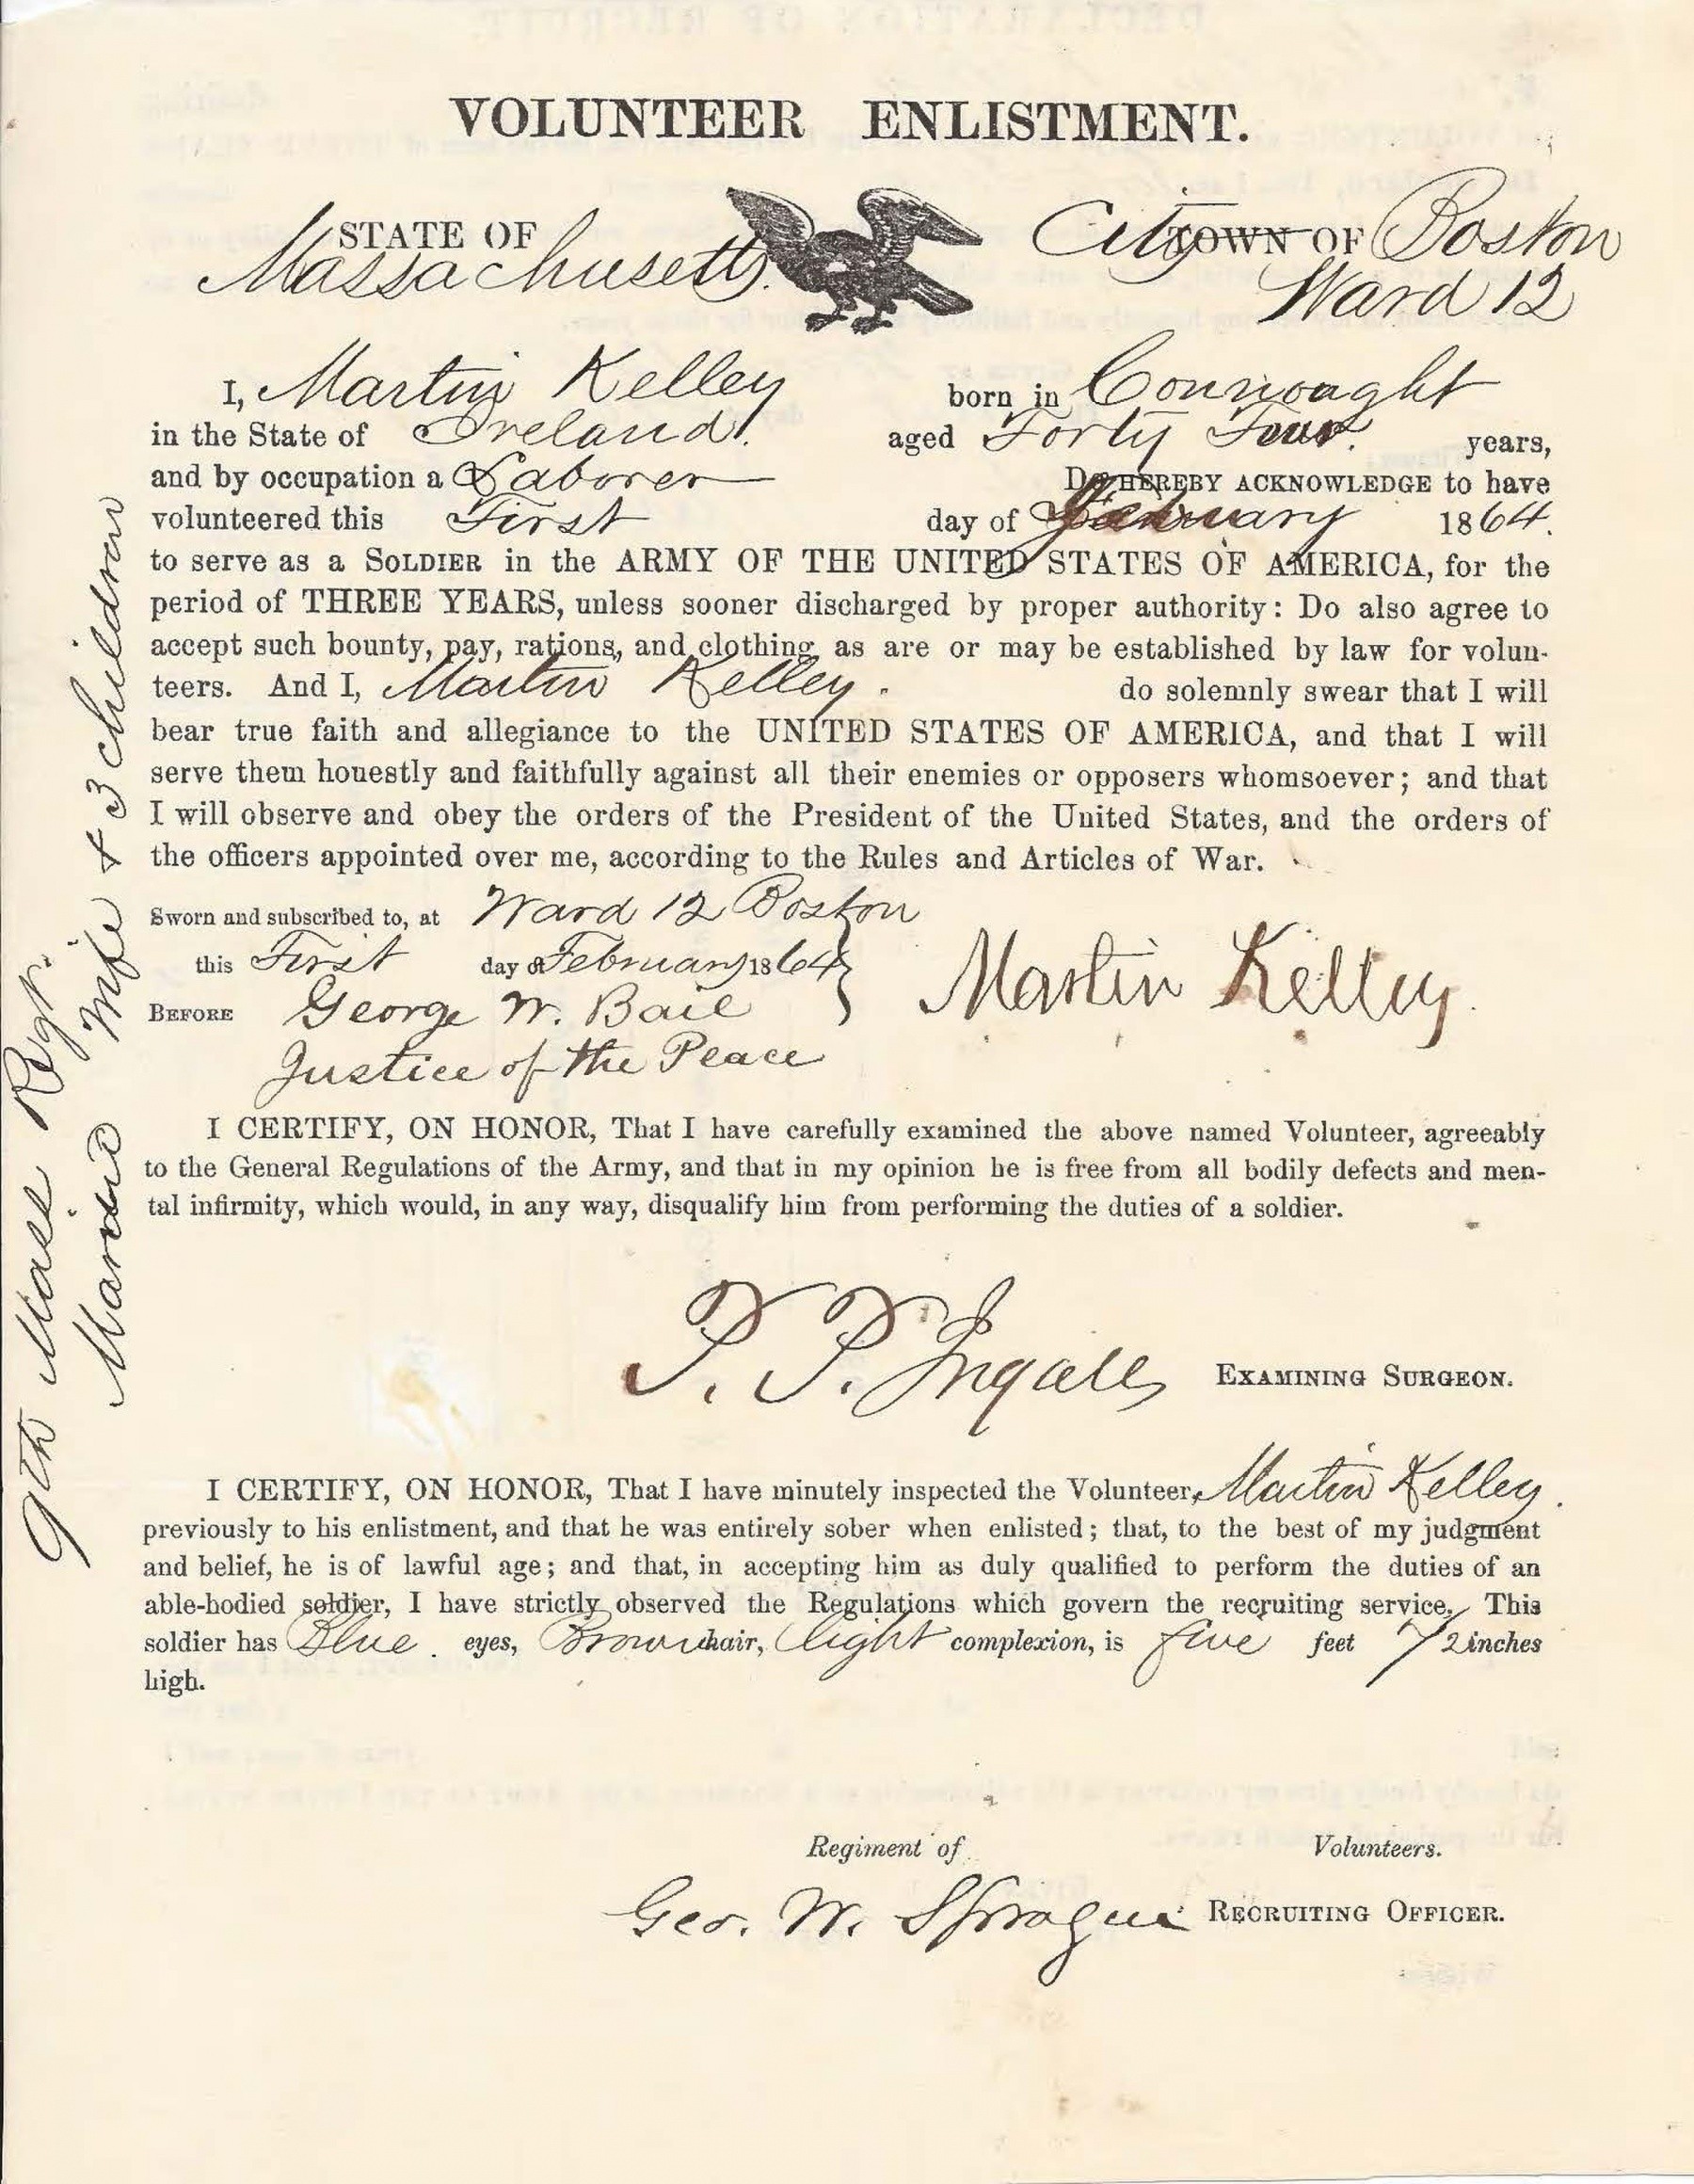 VOLUNTEER ENLISTMENT.
STATE OF
Massachusetts.
City TOWN OF Boston
Ward 12
I, Martin Kelley born in Connought
in the State of Ireland. aged Forty Four. years,
and by occupation a Laborer DO HEREBY ACKNOWLEDGE to have
volunteered this First day of February 1864.
to serve as a SOLDIER in the ARMY OF THE UNITED STATES OF AMERICA, for the
period of THREE YEARS, unless sooner discharged by proper authority: Do also agree to
accept such bounty, pay, rations, and clothing, as are or may be established by law for volun-
teers. And I, Martin Kelley. do solemnly swear that I will
bear true faith and allegiance to the UNITED STATES OF AMERICA, and that I will
serve them honestly and faithfully against all their enemies or opposers whomsoever; and that
I will observe and obey the orders of the President of the United States, and the orders of
the officers appointed over me, according to the Rules and Articles of War.
Sworn and subscribed to, at Ward 12 Boston
this First day of February 1864
BEFORE George W. Bail
Justice of the Peace
Martin Kelley.
I CERTIFY, ON HONOR, That I have carefully examined the above named Volunteer, agreeably
to the General Regulations of the Army, and that in my opinion he is free from all bodily defects and men-
tal infirmity, which would, in any way, disqualify him from performing the duties of a soldier.
P. P. Ingalls EXAMINING SURGEON.
I CERTIFY, ON HONOR, That I have minutely inspected the Volunteer, Martin Kelley.
previously to his enlistment, and that he was entirely sober when enlisted; that, to the best of my judgment
and belief, he is of lawful age; and that, in accepting him as duly qualified to perform the duties of an
able-bodied soldier, I have strictly observed the Regulations which govern the recruiting service. This
soldier has Blue. eyes, Brown hair, light complexion, is five feet 7/2 inches
high.
Regiment of Volunteers.
Geo. W. Sprague RECRUITING OFFICER.
9th Mass Regt.
Married Wife & 3 children